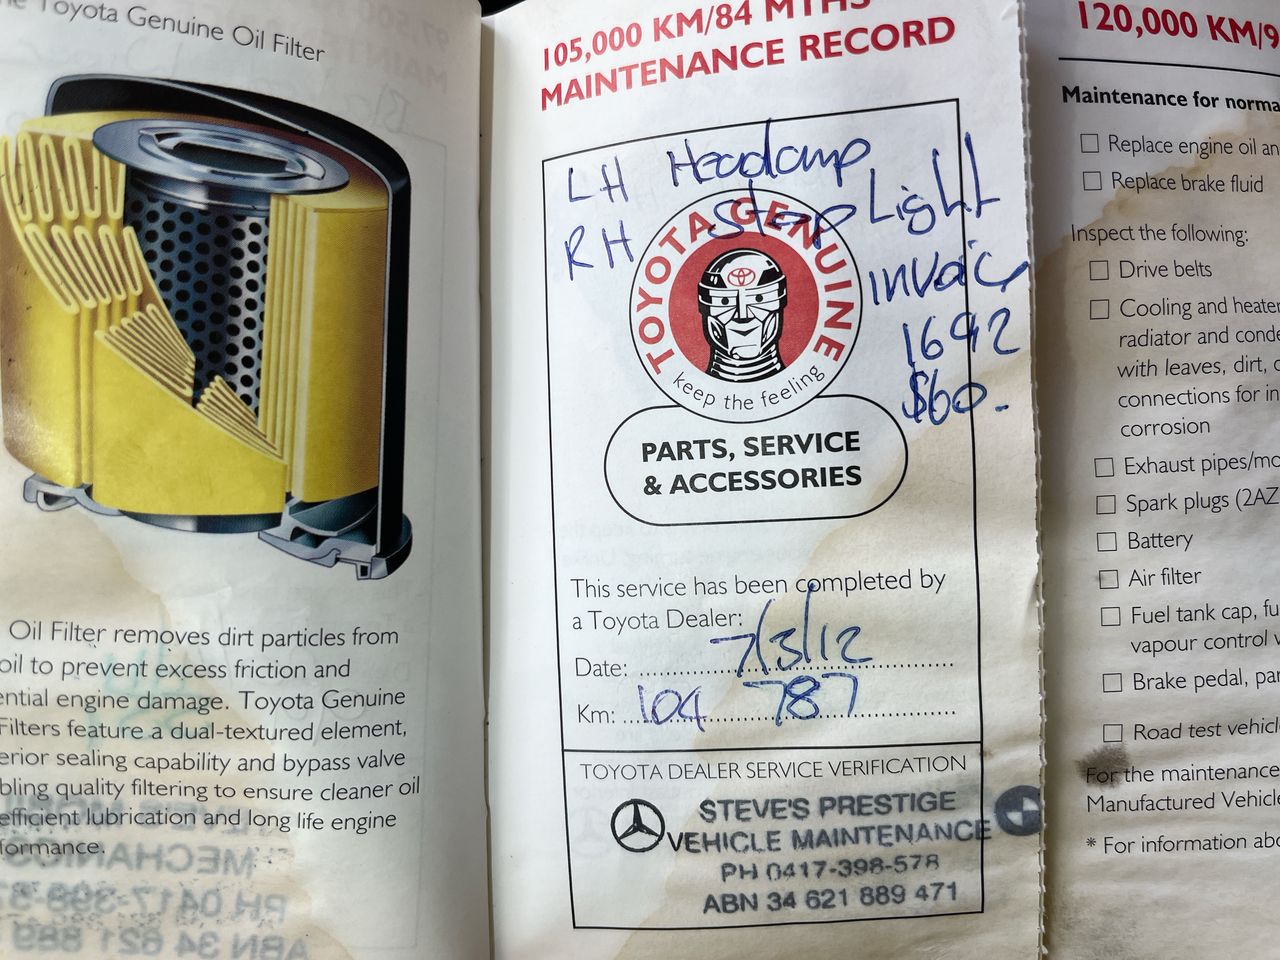 Toyota Genuine Oil Filter
Oil Filter removes dirt particles from
oil to prevent excess friction and
ential engine damage. Toyota Genuine
Filters feature a dual-textured element,
erior sealing capability and bypass valve
bling quality filtering to ensure cleaner oil
efficient lubrication and long life engine
formance.
MECHANICS
PH 0417-398-57
ABN 34 621 889
105,000 KM/84 MTHS
MAINTENANCE RECORD
LH Headlamp
RH Stop Light
invoice
1692
$60.
TOYOTA GENUINE
keep the feeling
PARTS, SERVICE
& ACCESSORIES
This service has been completed by
a Toyota Dealer:
Date: 7/3/12
Km: 104 787
TOYOTA DEALER SERVICE VERIFICATION
STEVE'S PRESTIGE
VEHICLE MAINTENANCE
PH 0417-398-578
ABN 34 621 889 471
120,000 KM/9
Maintenance for norma
Replace engine oil an
Replace brake fluid
Inspect the following:
Drive belts
Cooling and heater
radiator and conde
with leaves, dirt, o
connections for in
corrosion
Exhaust pipes/mo
Spark plugs (2AZ
Battery
Air filter
Fuel tank cap, fu
vapour control v
Brake pedal, par
Road test vehicle
For the maintenance
Manufactured Vehicle
* For information abo